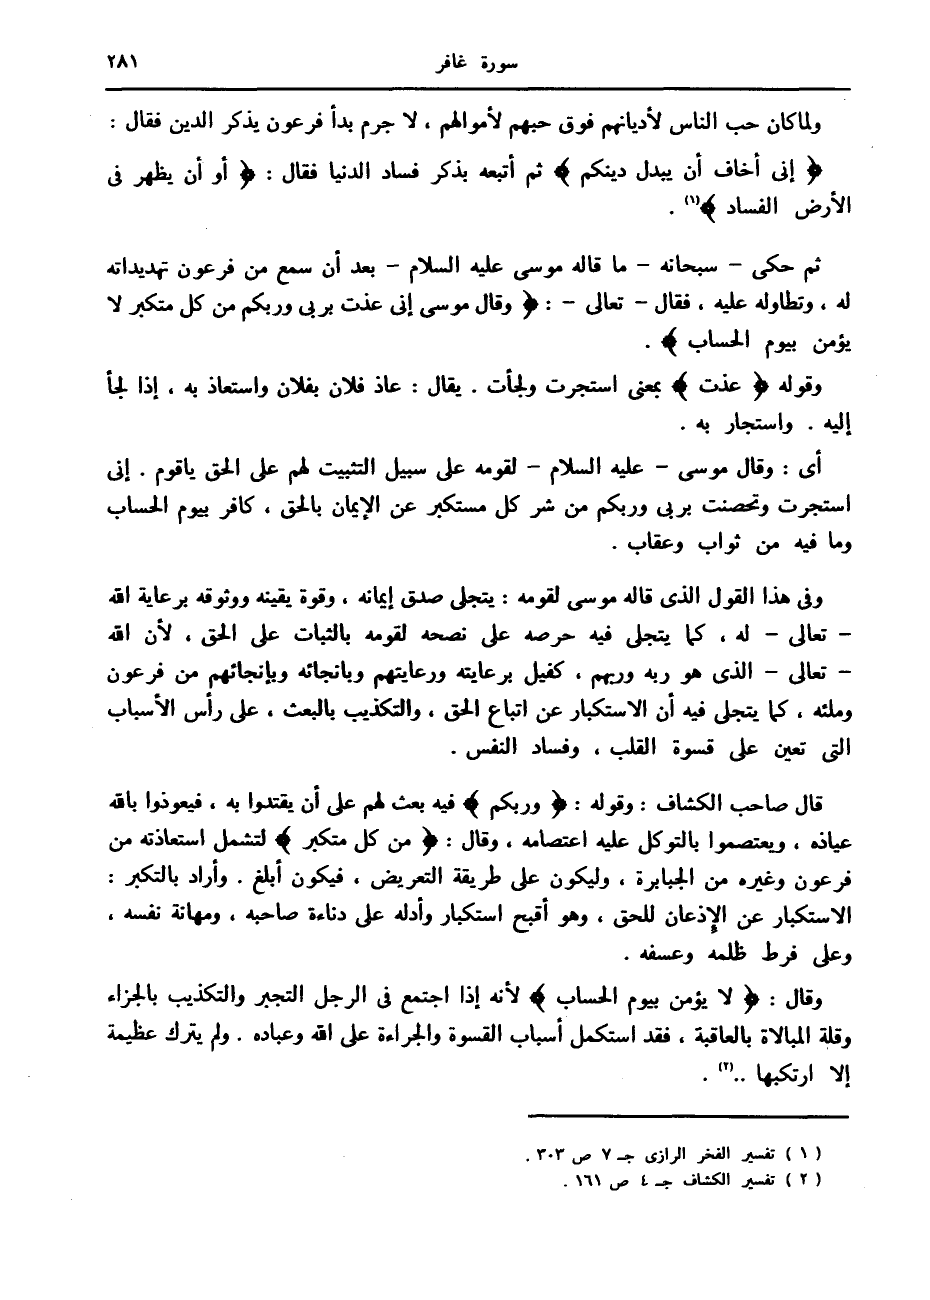 سورة غافر ٢٨١
ولما كان حب الناس لأديانهم فوق حبهم لأموالهم ، لا جرم بدأ فرعون يذكر الدين فقال :
﴿ إنى أخاف أن يبدل دينكم ﴾ ثم أتبعه بذكر فساد الدنيا فقال : ﴿ أو أن يظهر فى
الأرض الفساد ﴾(١) .
ثم حكى – سبحانه – ما قاله موسى عليه السلام – بعد أن سمع من فرعون تهديداته
له ، وتطاوله عليه ، فقال – تعالى – : ﴿ وقال موسى إنى عذت بربى وربكم من كل متكبر لا
يؤمن بيوم الحساب ﴾ .
وقوله ﴿ عذت ﴾ بمعنى استجرت ولجأت . يقال : عاذ فلان بفلان واستعاذ به ، إذا لجأ
إليه . واستجار به .
أى : وقال موسى – عليه السلام – لقومه على سبيل التثبيت لهم على الحق ياقوم . إنى
استجرت وتحصنت بربى وربكم من شر كل مستكبر عن الإيمان بالحق ، كافر بيوم الحساب
وما فيه من ثواب وعقاب .
وفى هذا القول الذى قاله موسى لقومه : يتجلى صدق إيمانه ، وقوة يقينه ووثوقه برعاية الله
– تعالى – له ، كما يتجلى فيه حرصه على نصحه لقومه بالثبات على الحق ، لأن الله
– تعالى – الذى هو ربه وربهم ، كفيل برعايته ورعايتهم وبانجائه وبإنجائهم من فرعون
وملئه ، كما يتجلى فيه أن الاستكبار عن اتباع الحق ، والتكذيب بالبعث ، على رأس الأسباب
التى تعين على قسوة القلب ، وفساد النفس .
قال صاحب الكشاف : وقوله : ﴿ وربكم ﴾ فيه بعث لهم على أن يقتدوا به ، فيعوذوا بالله
عياذه ، ويعتصموا بالتوكل عليه اعتصامه ، وقال : ﴿ من كل متكبر ﴾ لتشمل استعاذته من
فرعون وغيره من الجبابرة ، وليكون على طريقة التعريض ، فيكون أبلغ . وأراد بالتكبر :
الاستكبار عن الإذعان للحق ، وهو أقبح استكبار وأدله على دناءة صاحبه ، ومهانة نفسه ،
وعلى فرط ظلمه وعسفه .
وقال : ﴿ لا يؤمن بيوم الحساب ﴾ لأنه إذا اجتمع فى الرجل التجبر والتكذيب بالجزاء
وقلة المبالاة بالعاقبة ، فقد استكمل أسباب القسوة والجراءة على الله وعباده . ولم يترك عظيمة
إلا ارتكبها ..(٢) .
( ١ ) تفسير الفخر الرازى جـ ٧ ص ٣٠٣ .
( ٢ ) تفسير الكشاف جـ ٤ ص ١٦١ .